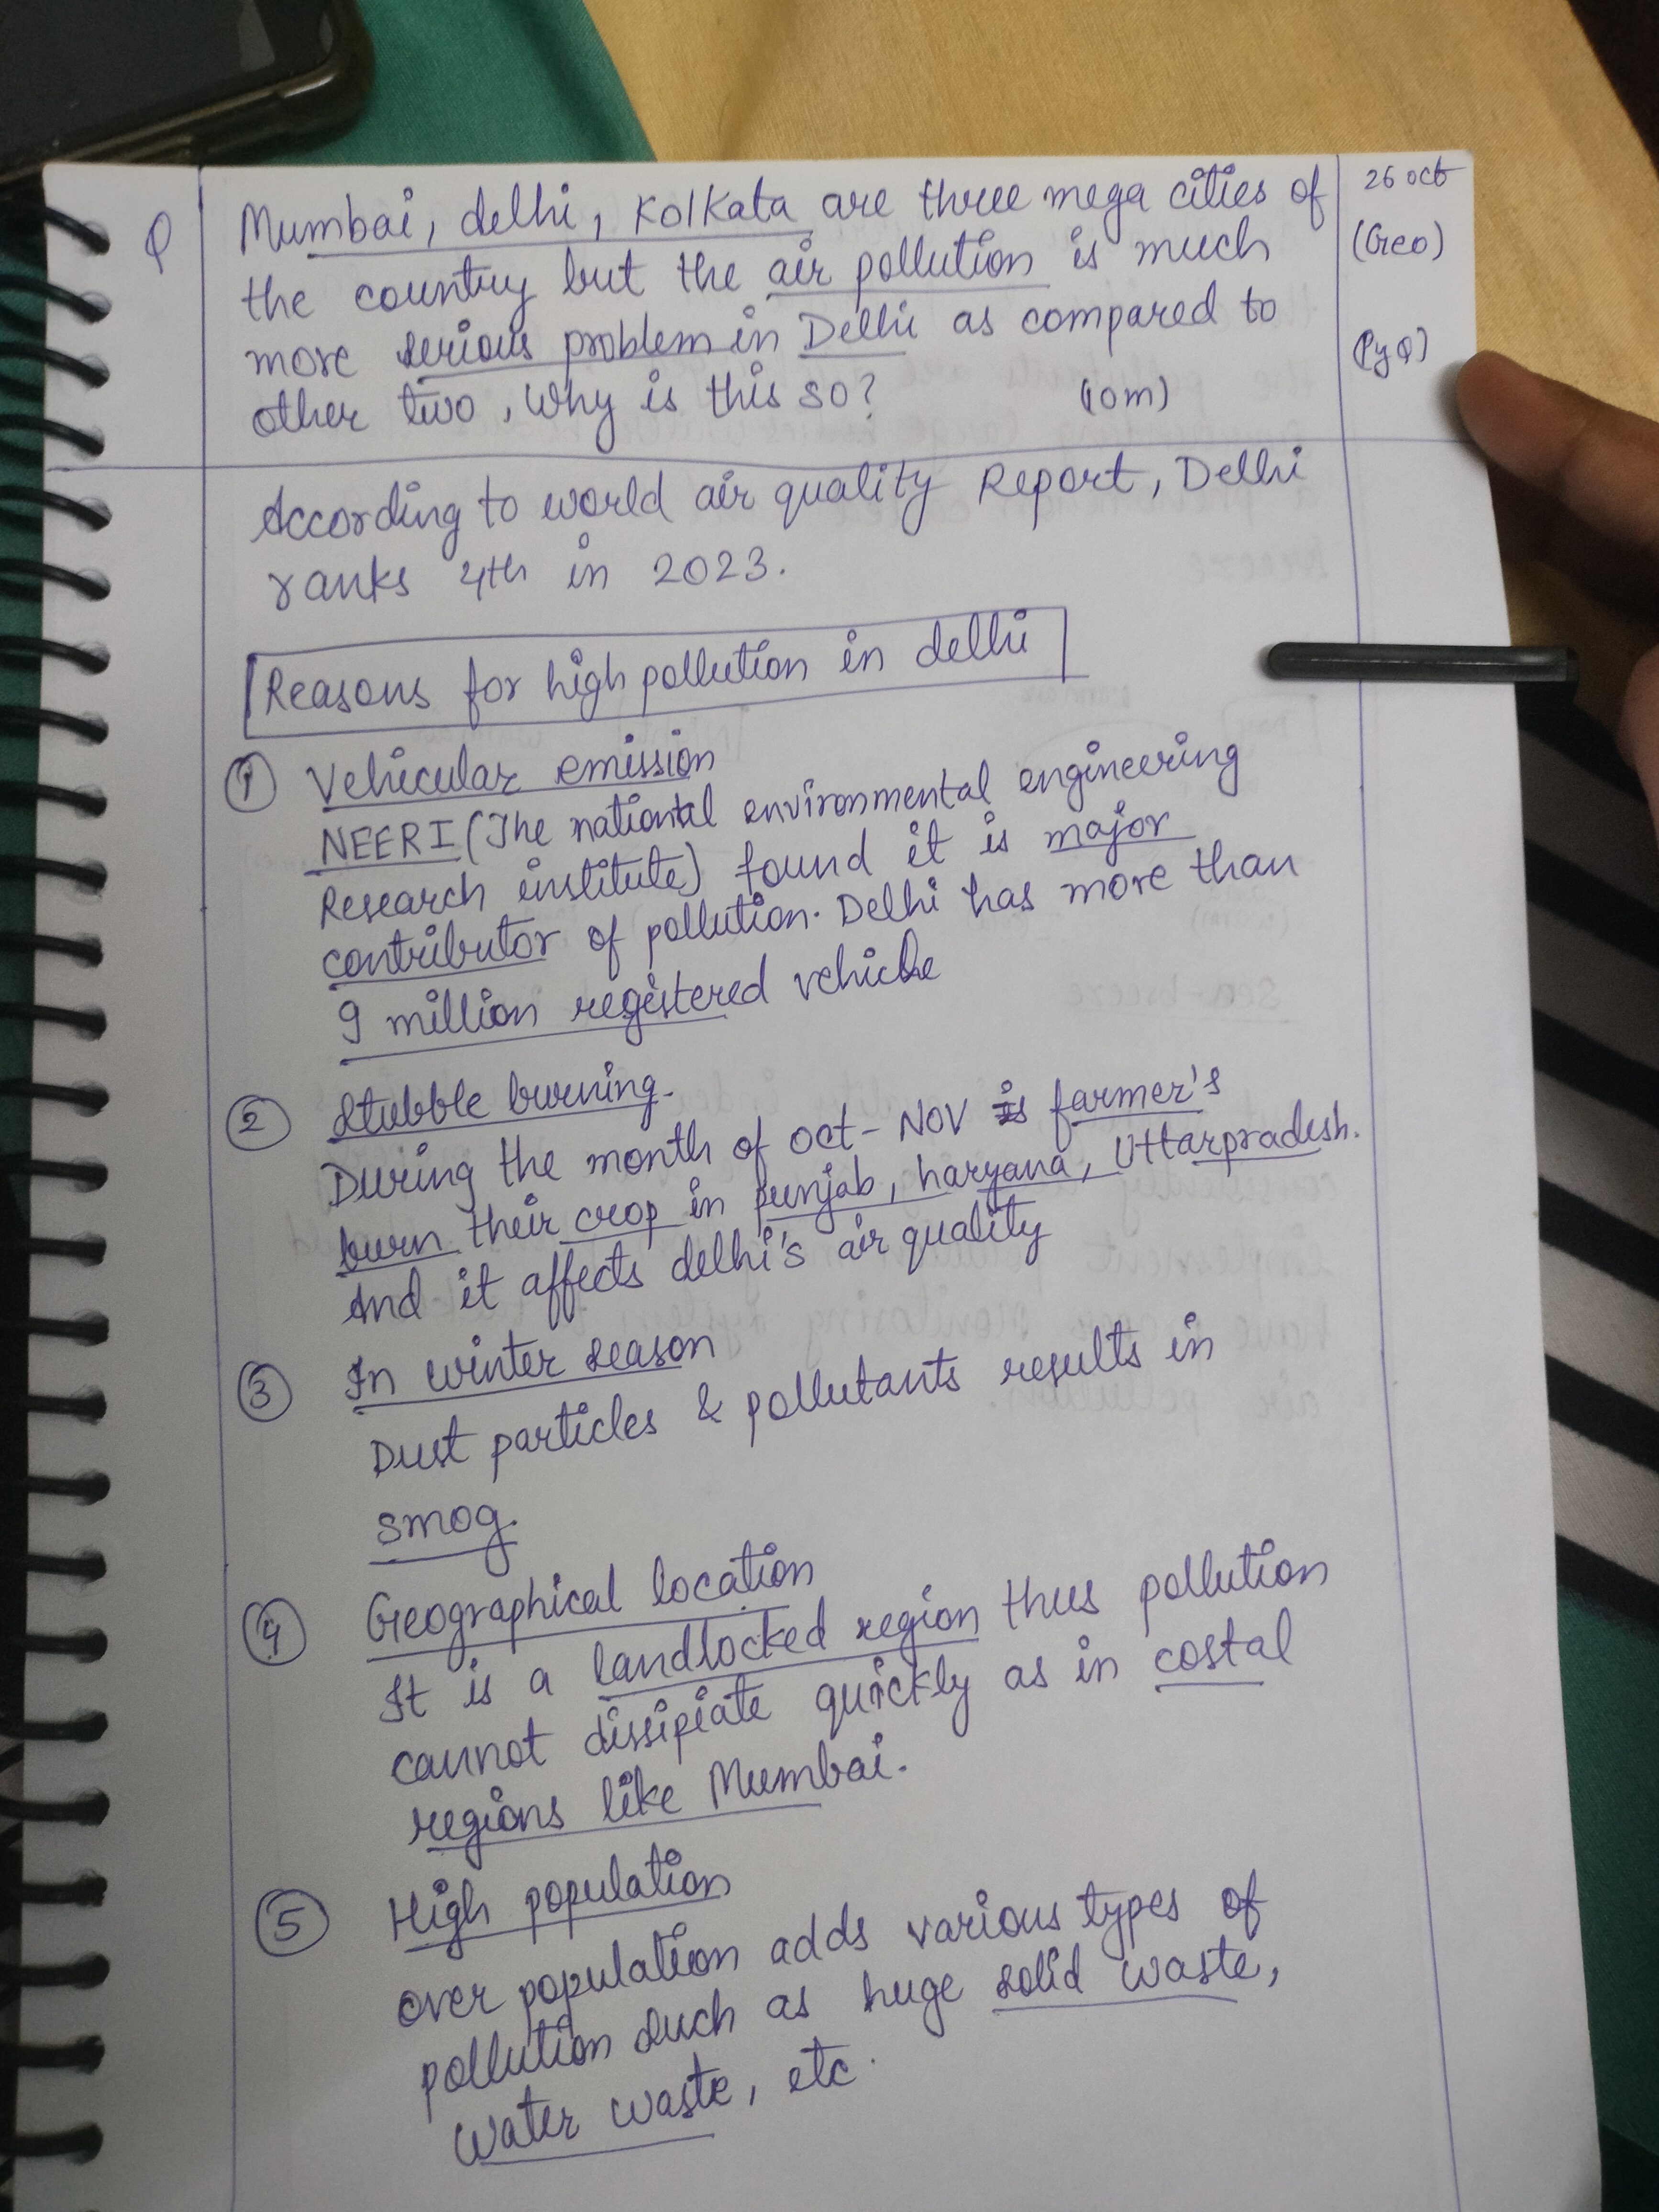 Q
Mumbai, delhi, Kolkata are three mega cities of
the country but the air pollution is much
more serious problem in Delhi as compared to
other two, Why is this so? (10m)
26 oct
(Geo)
(PyQ)
According to world air quality Report, Delhi
ranks 4th in 2023.
Reasons for high pollution in delhi
1 Vehicular emission
NEERI (The national environmental engineering
Research institute) found it is major
contributor of pollution. Delhi has more than
9 million registered vehicle
2 Stubble burning.
During the month of oct - Nov farmer's
burn their crop in punjab, haryana, Uttarpradesh.
And it affects delhi's air quality
3 In winter season
Dust particles & pollutants results in
smog.
4 Geographical location
It is a landlocked region thus pollution
cannot dissipiate quickly as in costal
regions like Mumbai.
5 High population
over population adds various types of
pollution such as huge solid waste,
water waste, etc.